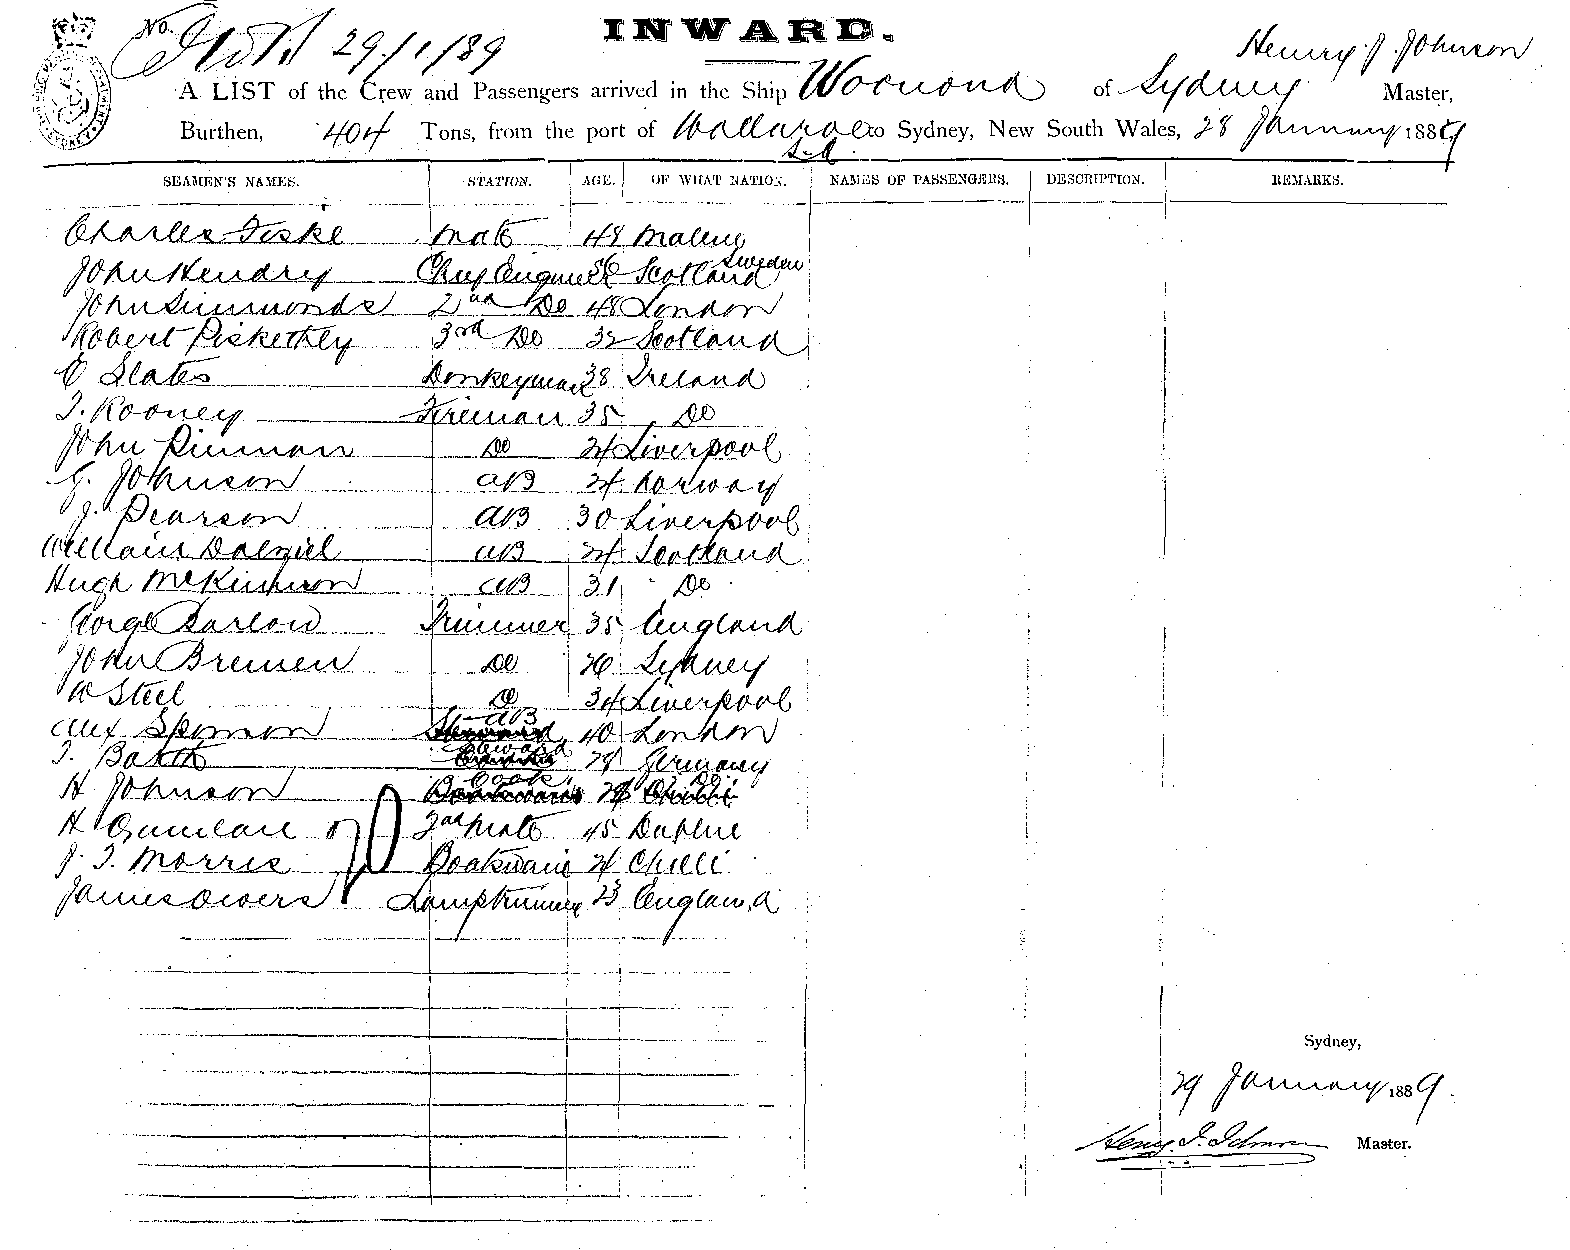 No. 29/1/89
INWARD.
Henry J. Johnson
A LIST of the Crew and Passengers arrived in the Ship Woonona of Sydney Master,
Burthen, 404 Tons, from the port of Wallaroo to Sydney, New South Wales, 28 January 1889
S.A.
SEAMEN'S NAMES. STATION. AGE. OF WHAT NATION. NAMES OF PASSENGERS. DESCRIPTION. REMARKS.
Charles Fiske Mate 48
Sweden
John Hendry Chief Engineer Scotland
John Simmonds 2nd Do 48 London
Robert Piskethly 3rd Do 32 Scotland
Slates Donkeyman 38 Ireland
T. Rooney Fireman 35 Do
John Do 24 Liverpool
G. Johnson AB 24 Norway
J. Pearson AB 30 Liverpool
William Dalziel AB 24 Scotland
Hugh McKinnon AB 31 Do
George Barlow Trimmer 35 England
John Bremen Do 26 Sydney
W Steel Do 34 Liverpool
AB
Alex 40 London
Steward
T. Barth 29 Germany
Cook Do
H Johnson
H 2nd Mate 45 Dublin
J. T. Morris Boatswain 24 Chilli
James Owers Lamptrimmer 23 England
Sydney,
29 January 1889.
Henry J. Johnson Master.